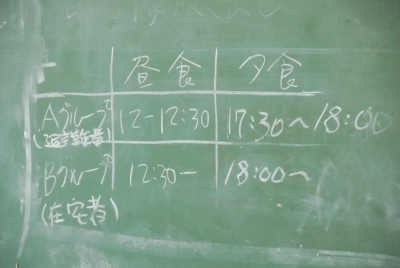 昼食 夕食
Aグループ 12-12:30 17:30〜18:00
(避難者)
Bグループ 12:30- 18:00〜
(在宅者)